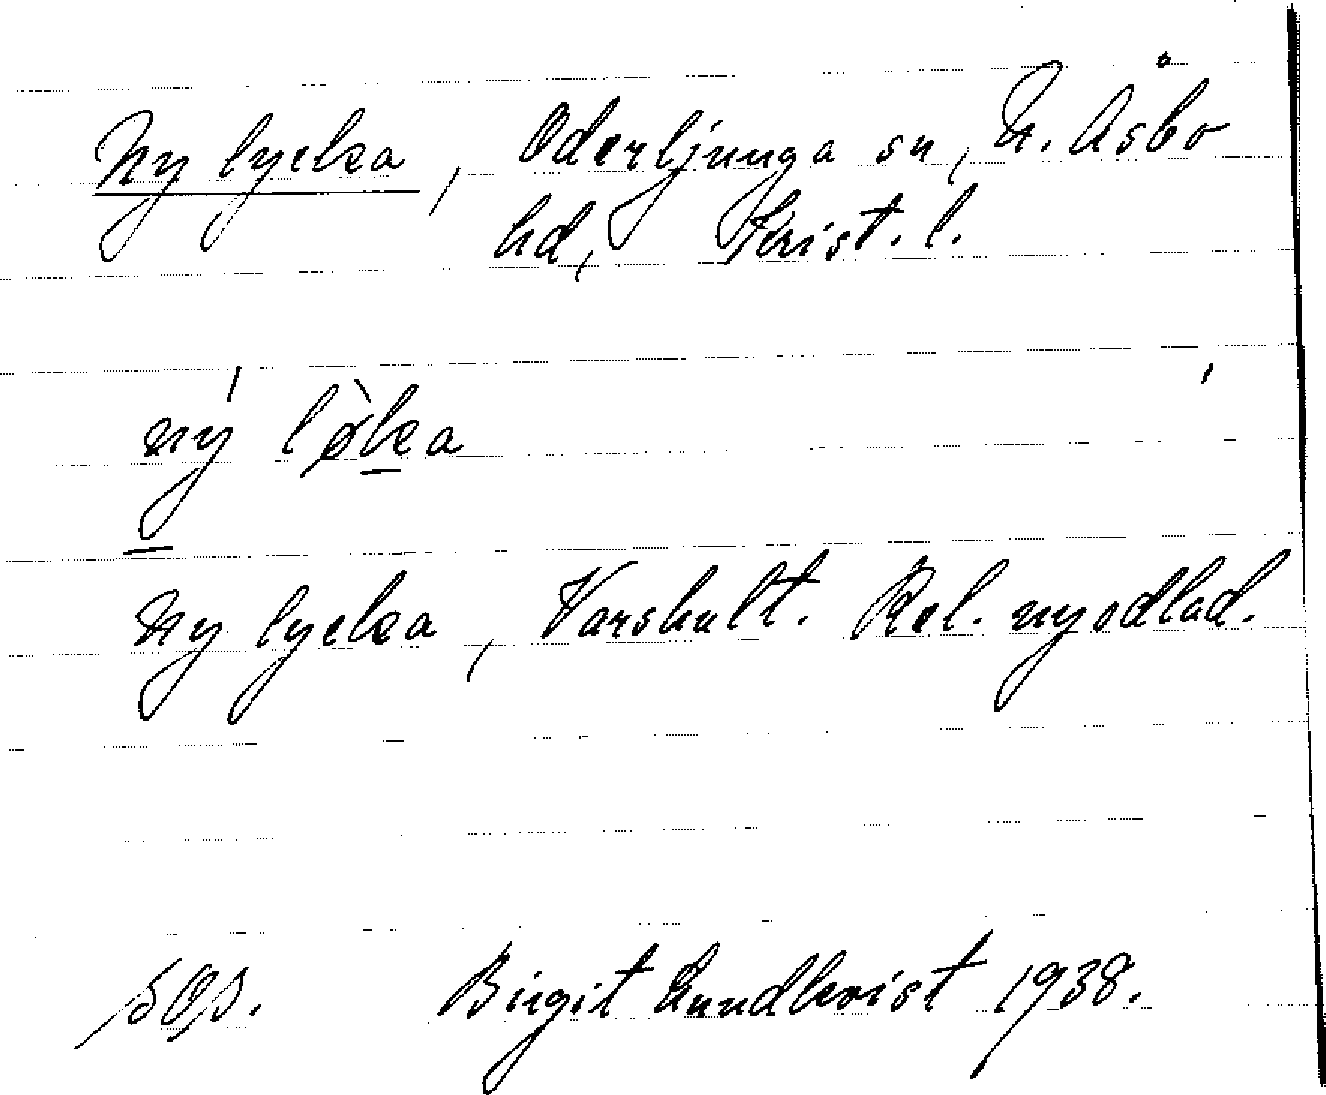 Ny lycka, Oderljunga sn, N. Åsbo
hd, Krist. l.
ný lø̀ka
Ny lycka, Varshult. Rel. nyodlad.
Birgit Lundkvist 1938.